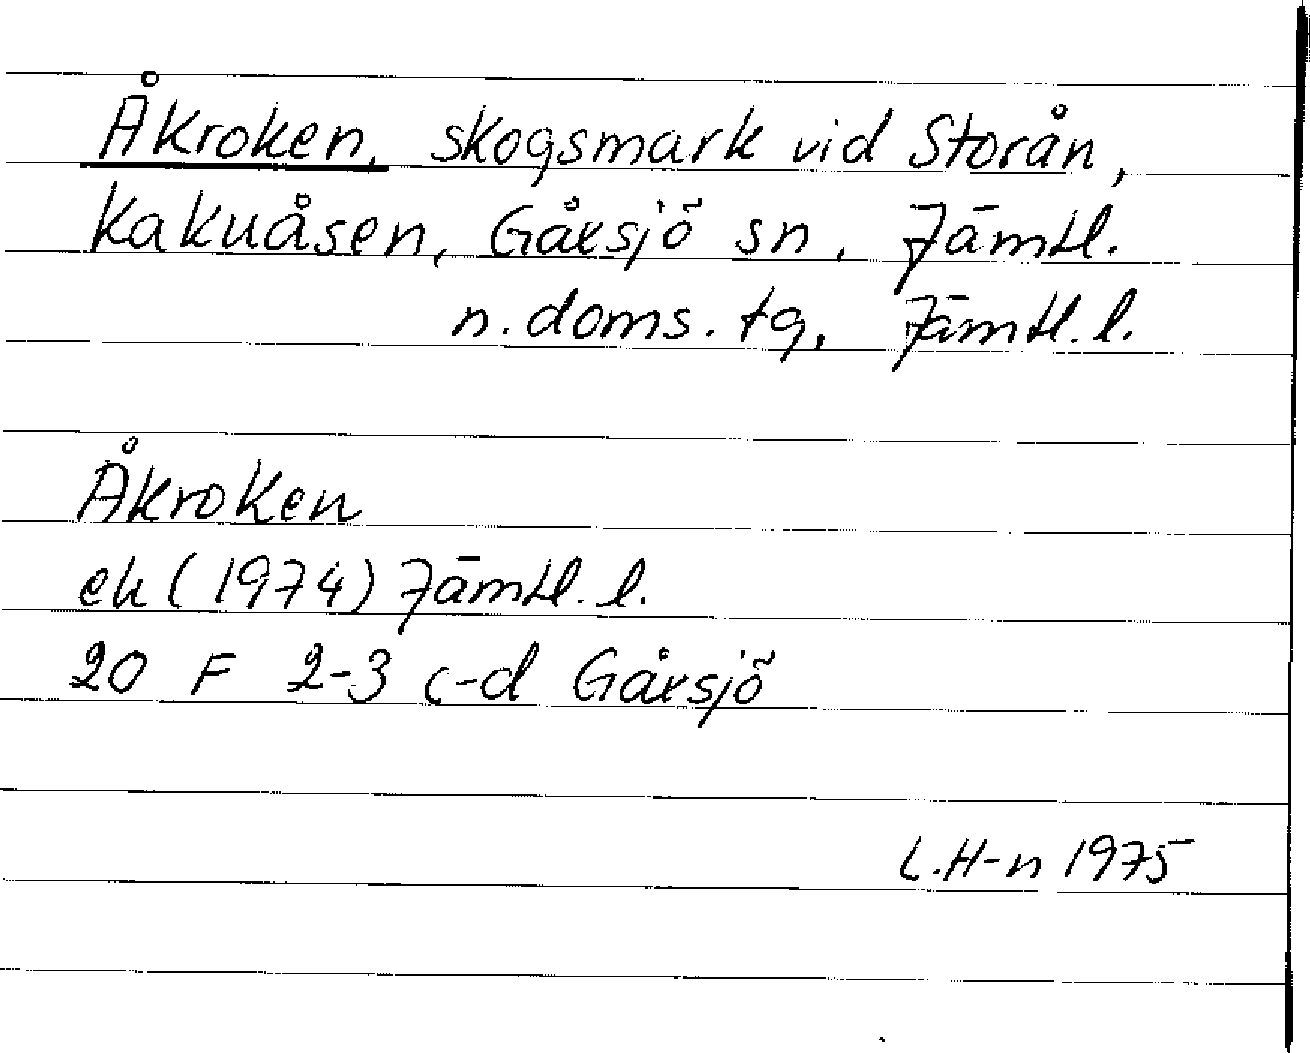 Åkroken, skogsmark vid Storån,
Kakuåsen, Gåxsjö sn, Jämtl.
n. doms. tg, Jämtl. l.
Åkroken
ek (1974) Jämtl. l.
20 F 2-3 c-d Gåxsjö
L.H-n 1975